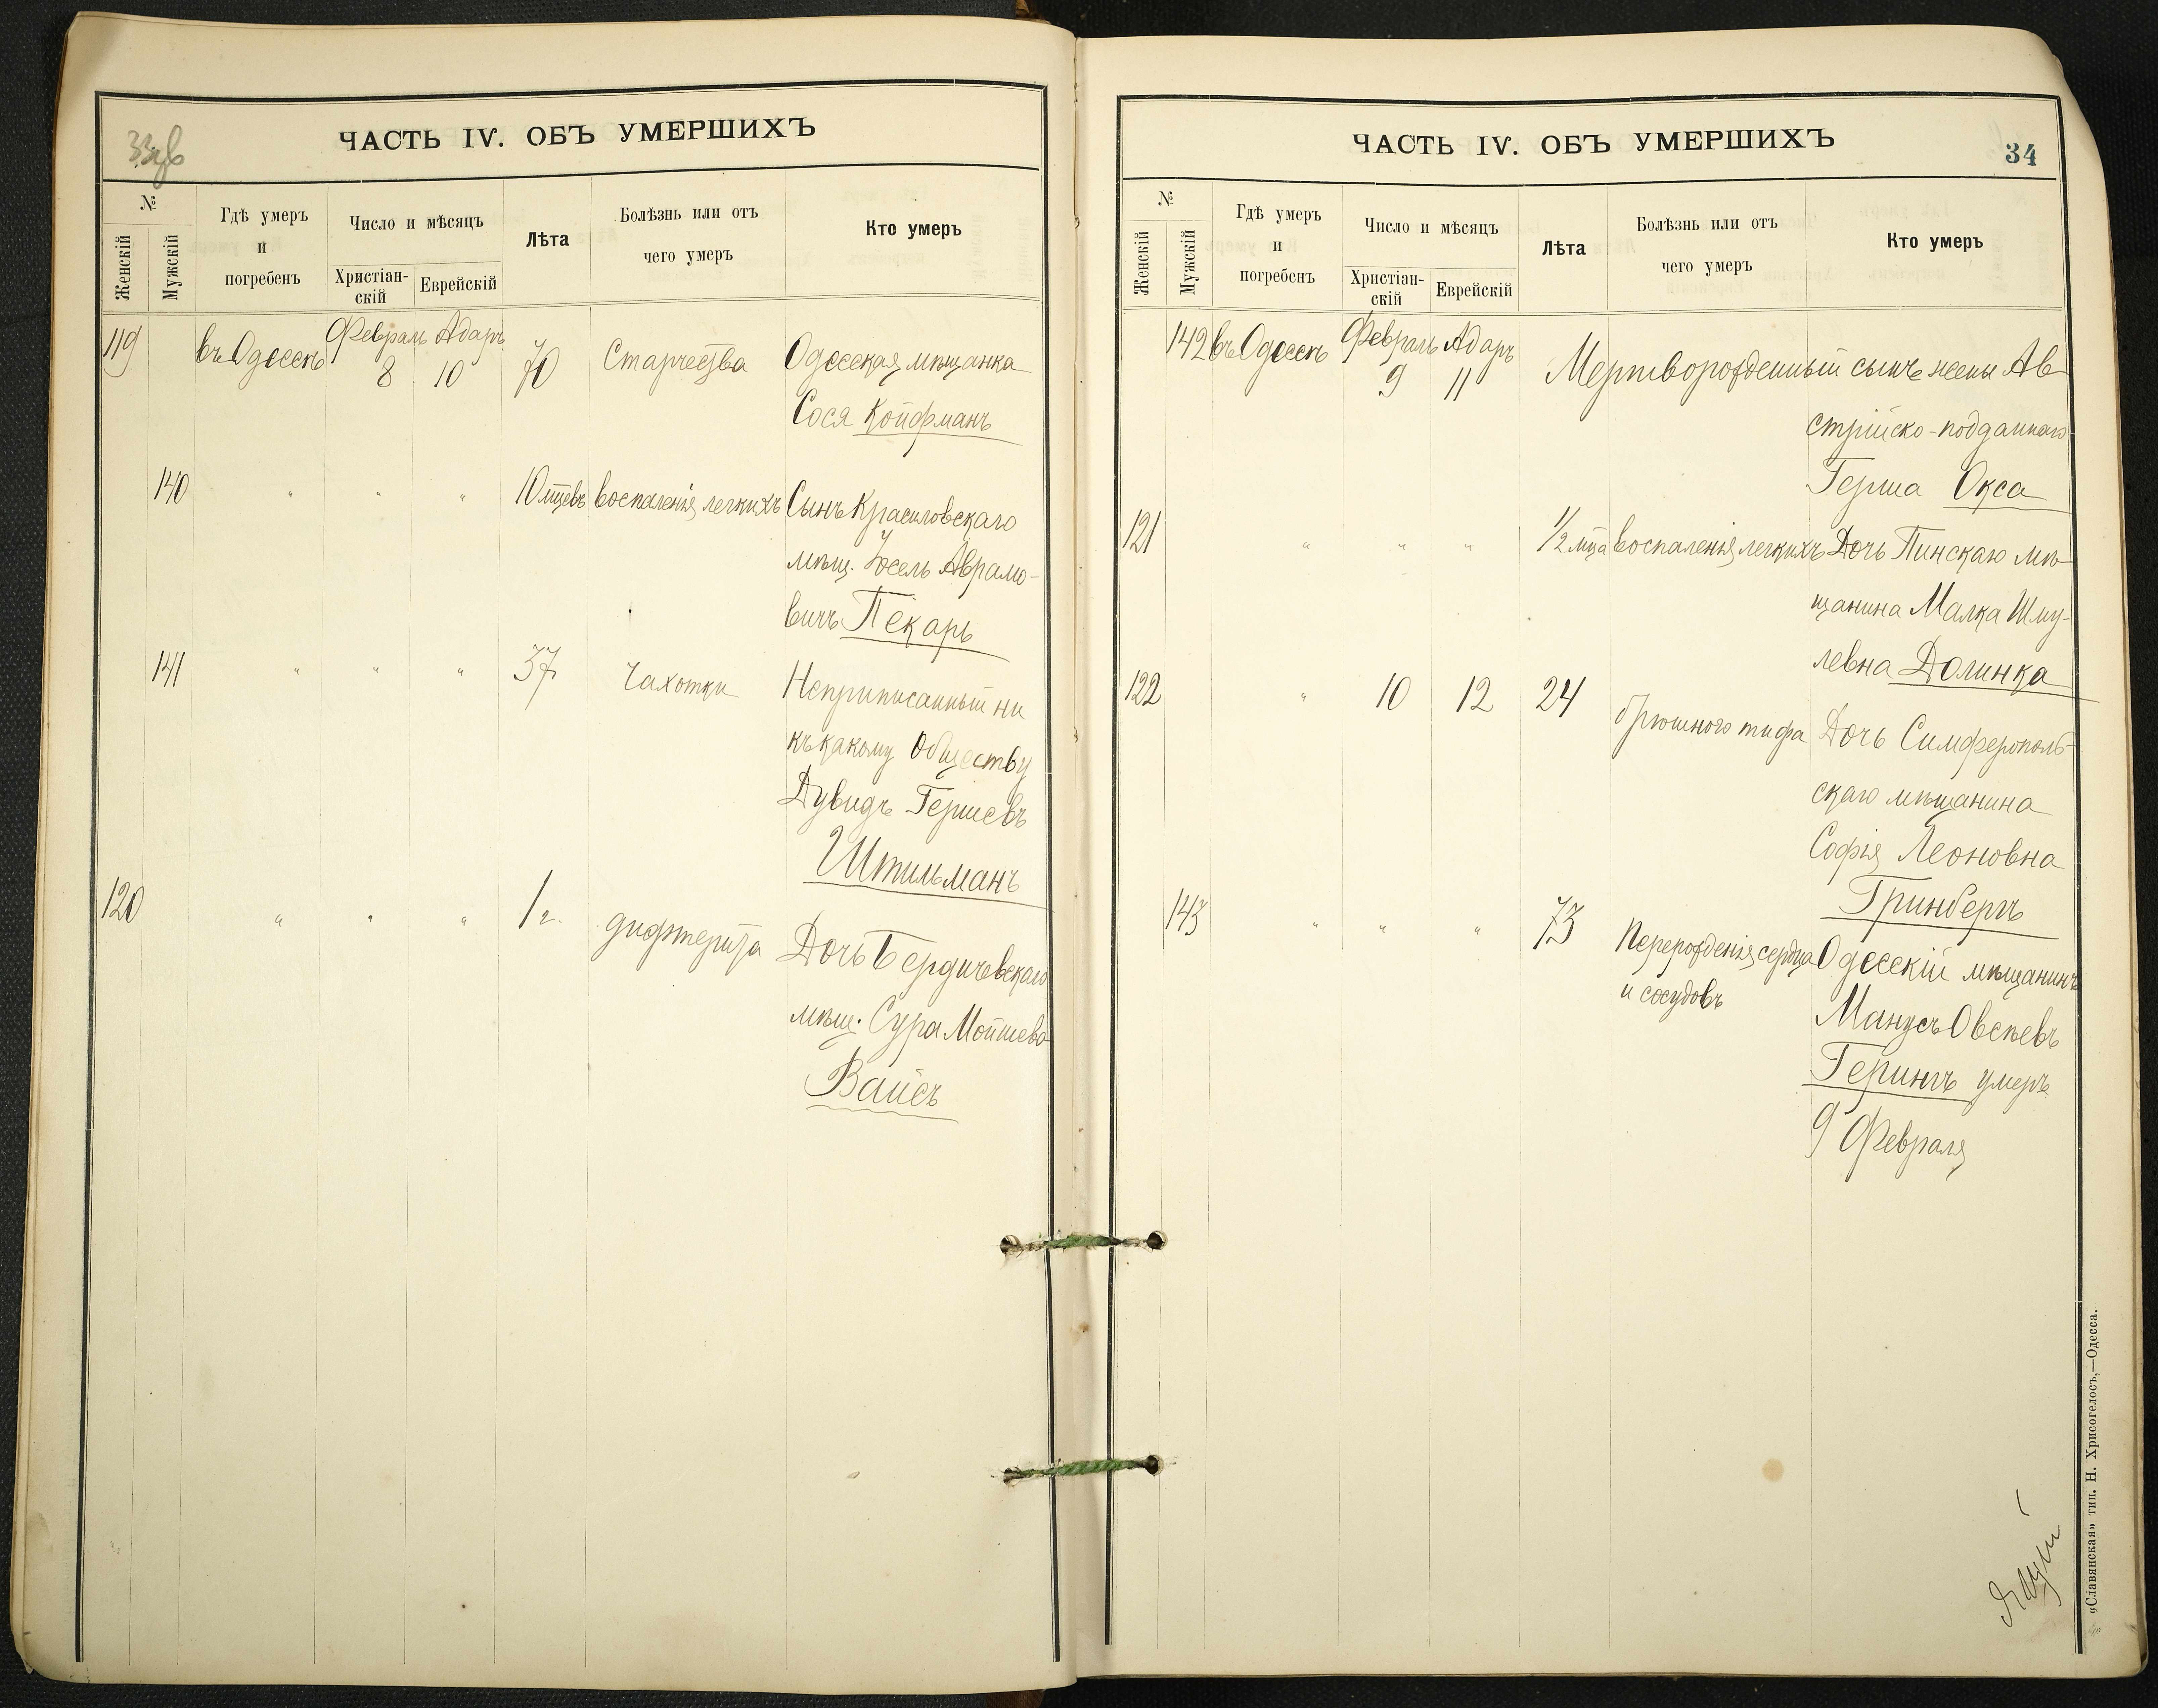 33 ЧАСТЬ IV. ОБЪ УМЕРШИХЪ
№
Женскій
Мужскій
Гдѣ умеръ
и
погребенъ
Число и мѣсяцъ
Христіан-
скій
Еврейскій
Лѣта
Болѣзнь или отъ
чего умеръ
Кто умеръ
Февраль Адаръ
119 въ Одессѣ 8 10 70 Старчества Одесская мѣщанка
Сося Койфманъ
140 " " " 10 мцевъ воспаленія легкихъ Сынъ Красиловскаго
мѣщ. Іосель Аврамо-
вичъ Пекарь
141 " " " 37 Чахотки Неприписанный ни
къ какому обществу
Дувидъ Гершевъ
Штильманъ
120 " " " 1 г. дифтерита Дочь Бердичевскаго
мѣщ. Сура Мойшева
Вайсъ
ЧАСТЬ IV. ОБЪ УМЕРШИХЪ
34
№
Женскій
Мужскій
Гдѣ умеръ
и
погребенъ
Число и мѣсяцъ
Христіан-
скій
Еврейскій
Лѣта
Болѣзнь или отъ
чего умеръ
Кто умеръ
Февраль Адаръ
142 въ Одессѣ 9 11 Мертворожденный сынъ жены Ав-
стрійско-подданнаго
Герша Окса
121 " " " 1/2 мца воспаленія легкихъ Дочь Пинскаго мѣ-
щанина Малка Шму-
левна Долинка
122 " 10 12 24 брюшного тифа Дочь Симферополь-
скаго мѣщанина
Софія Леоновна
Гринбергъ
143 " " " 73 Перерожденія сердца Одесскій мѣщанинъ
и сосудовъ
Манусъ Овсѣевъ
Герингъ умеръ
9 Февраля
«Славянская» тип. Н. Хрисогелосъ,—Одесса.